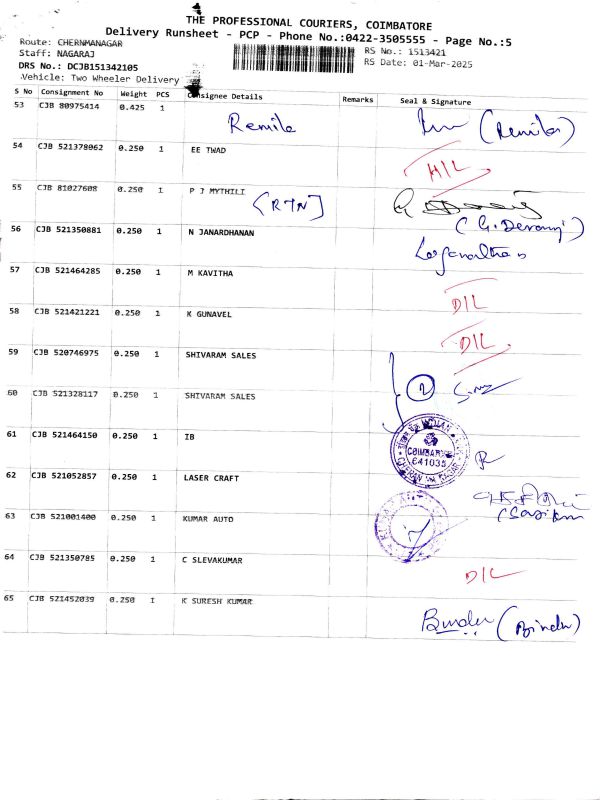 THE PROFESSIONAL COURIERS, COIMBATORE
Delivery Runsheet - PCP - Phone No.:0422-3505555 - Page No.:5
Route: CHERNMANAGAR
Staff: NAGARAJ
DRS No.: DCJB151342105
Vehicle: Two Wheeler Delivery
RS No.: 1513421
RS Date: 01-Mar-2025
S No Consignment No Weight PCS Consignee Details Remarks Seal & Signature
53 CJB 80975414 0.425 1 Remila (Remila)
54 CJB 521378062 0.250 1 EE TWAD
55 CJB 81027608 0.250 1 P J MYTHILI [RTN]
56 CJB 521350881 0.250 1 N JANARDHANAN
57 CJB 521464285 0.250 1 M KAVITHA D/L
58 CJB 521421221 0.250 1 K GUNAVEL D/L
59 CJB 520746975 1 SHIVARAM SALES 2
60 CJB 521328117 0.250 1 SHIVARAM SALES
61 CJB 521464150 0.250 1 IB COIMBATORE 641035
62 CJB 521052857 0.250 1 LASER CRAFT
63 CJB 521001400 0.250 1 KUMAR AUTO
64 CJB 521350785 0.250 1 C SLEVAKUMAR D/L
65 CJB 521452039 0.250 1 K SURESH KUMAR (Bindu)